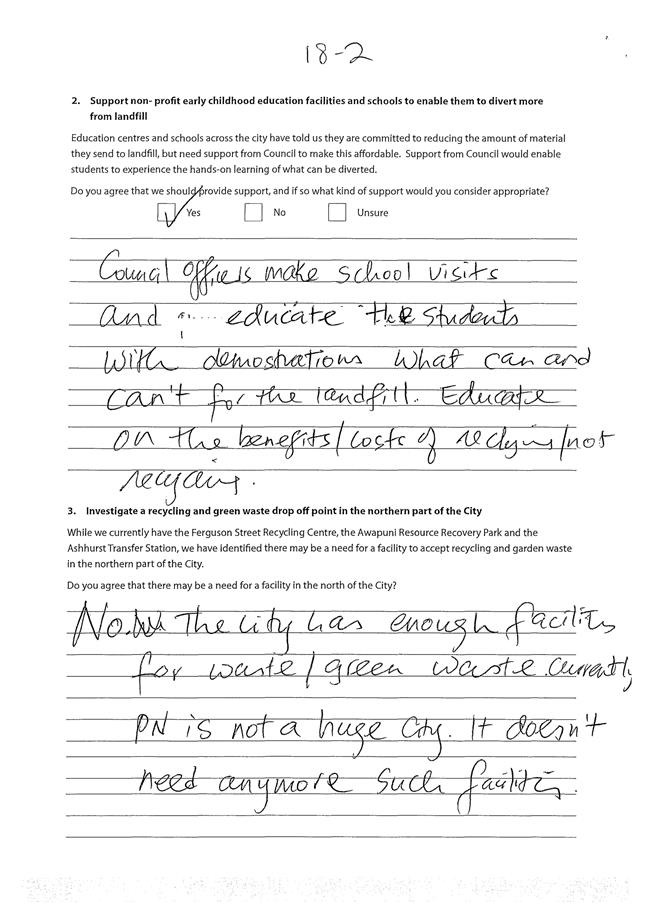 18-2
2. Support non- profit early childhood education facilities and schools to enable them to divert more
from landfill
Education centres and schools across the city have told us they are committed to reducing the amount of material
they send to landfill, but need support from Council to make this affordable. Support from Council would enable
students to experience the hands-on learning of what can be diverted.
Do you agree that we should provide support, and if so what kind of support would you consider appropriate?
Yes No Unsure
Council officers make school visits
and educate the students
with demostrations what can and
can't for the landfill. Educate
on the benefits/costs of recycling/not
recycling.
3. Investigate a recycling and green waste drop off point in the northern part of the City
While we currently have the Ferguson Street Recycling Centre, the Awapuni Resource Recovery Park and the
Ashhurst Transfer Station, we have identified there may be a need for a facility to accept recycling and garden waste
in the northern part of the City.
Do you agree that there may be a need for a facility in the north of the City?
No. The city has enough facilities
for waste/green waste currently
PN is not a huge city. It doesn't
need anymore such facilities.